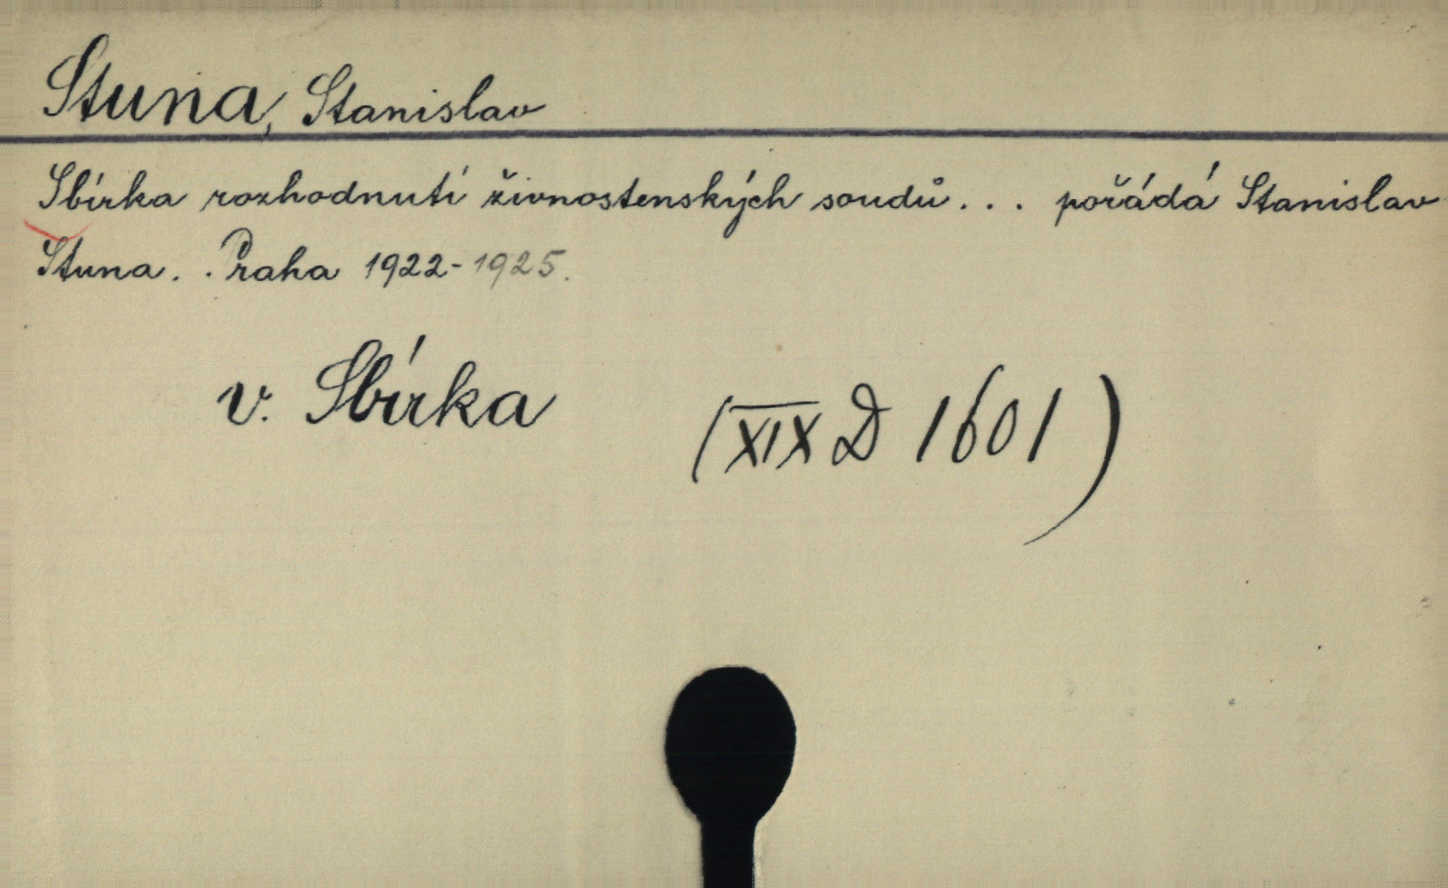 Stuna, Stanislav
Sbírka rozhodnutí živnostenských soudů... pořádá Stanislav
Stuna. . Praha 1922-1925.
v. Sbírka
(XIX D 1601)